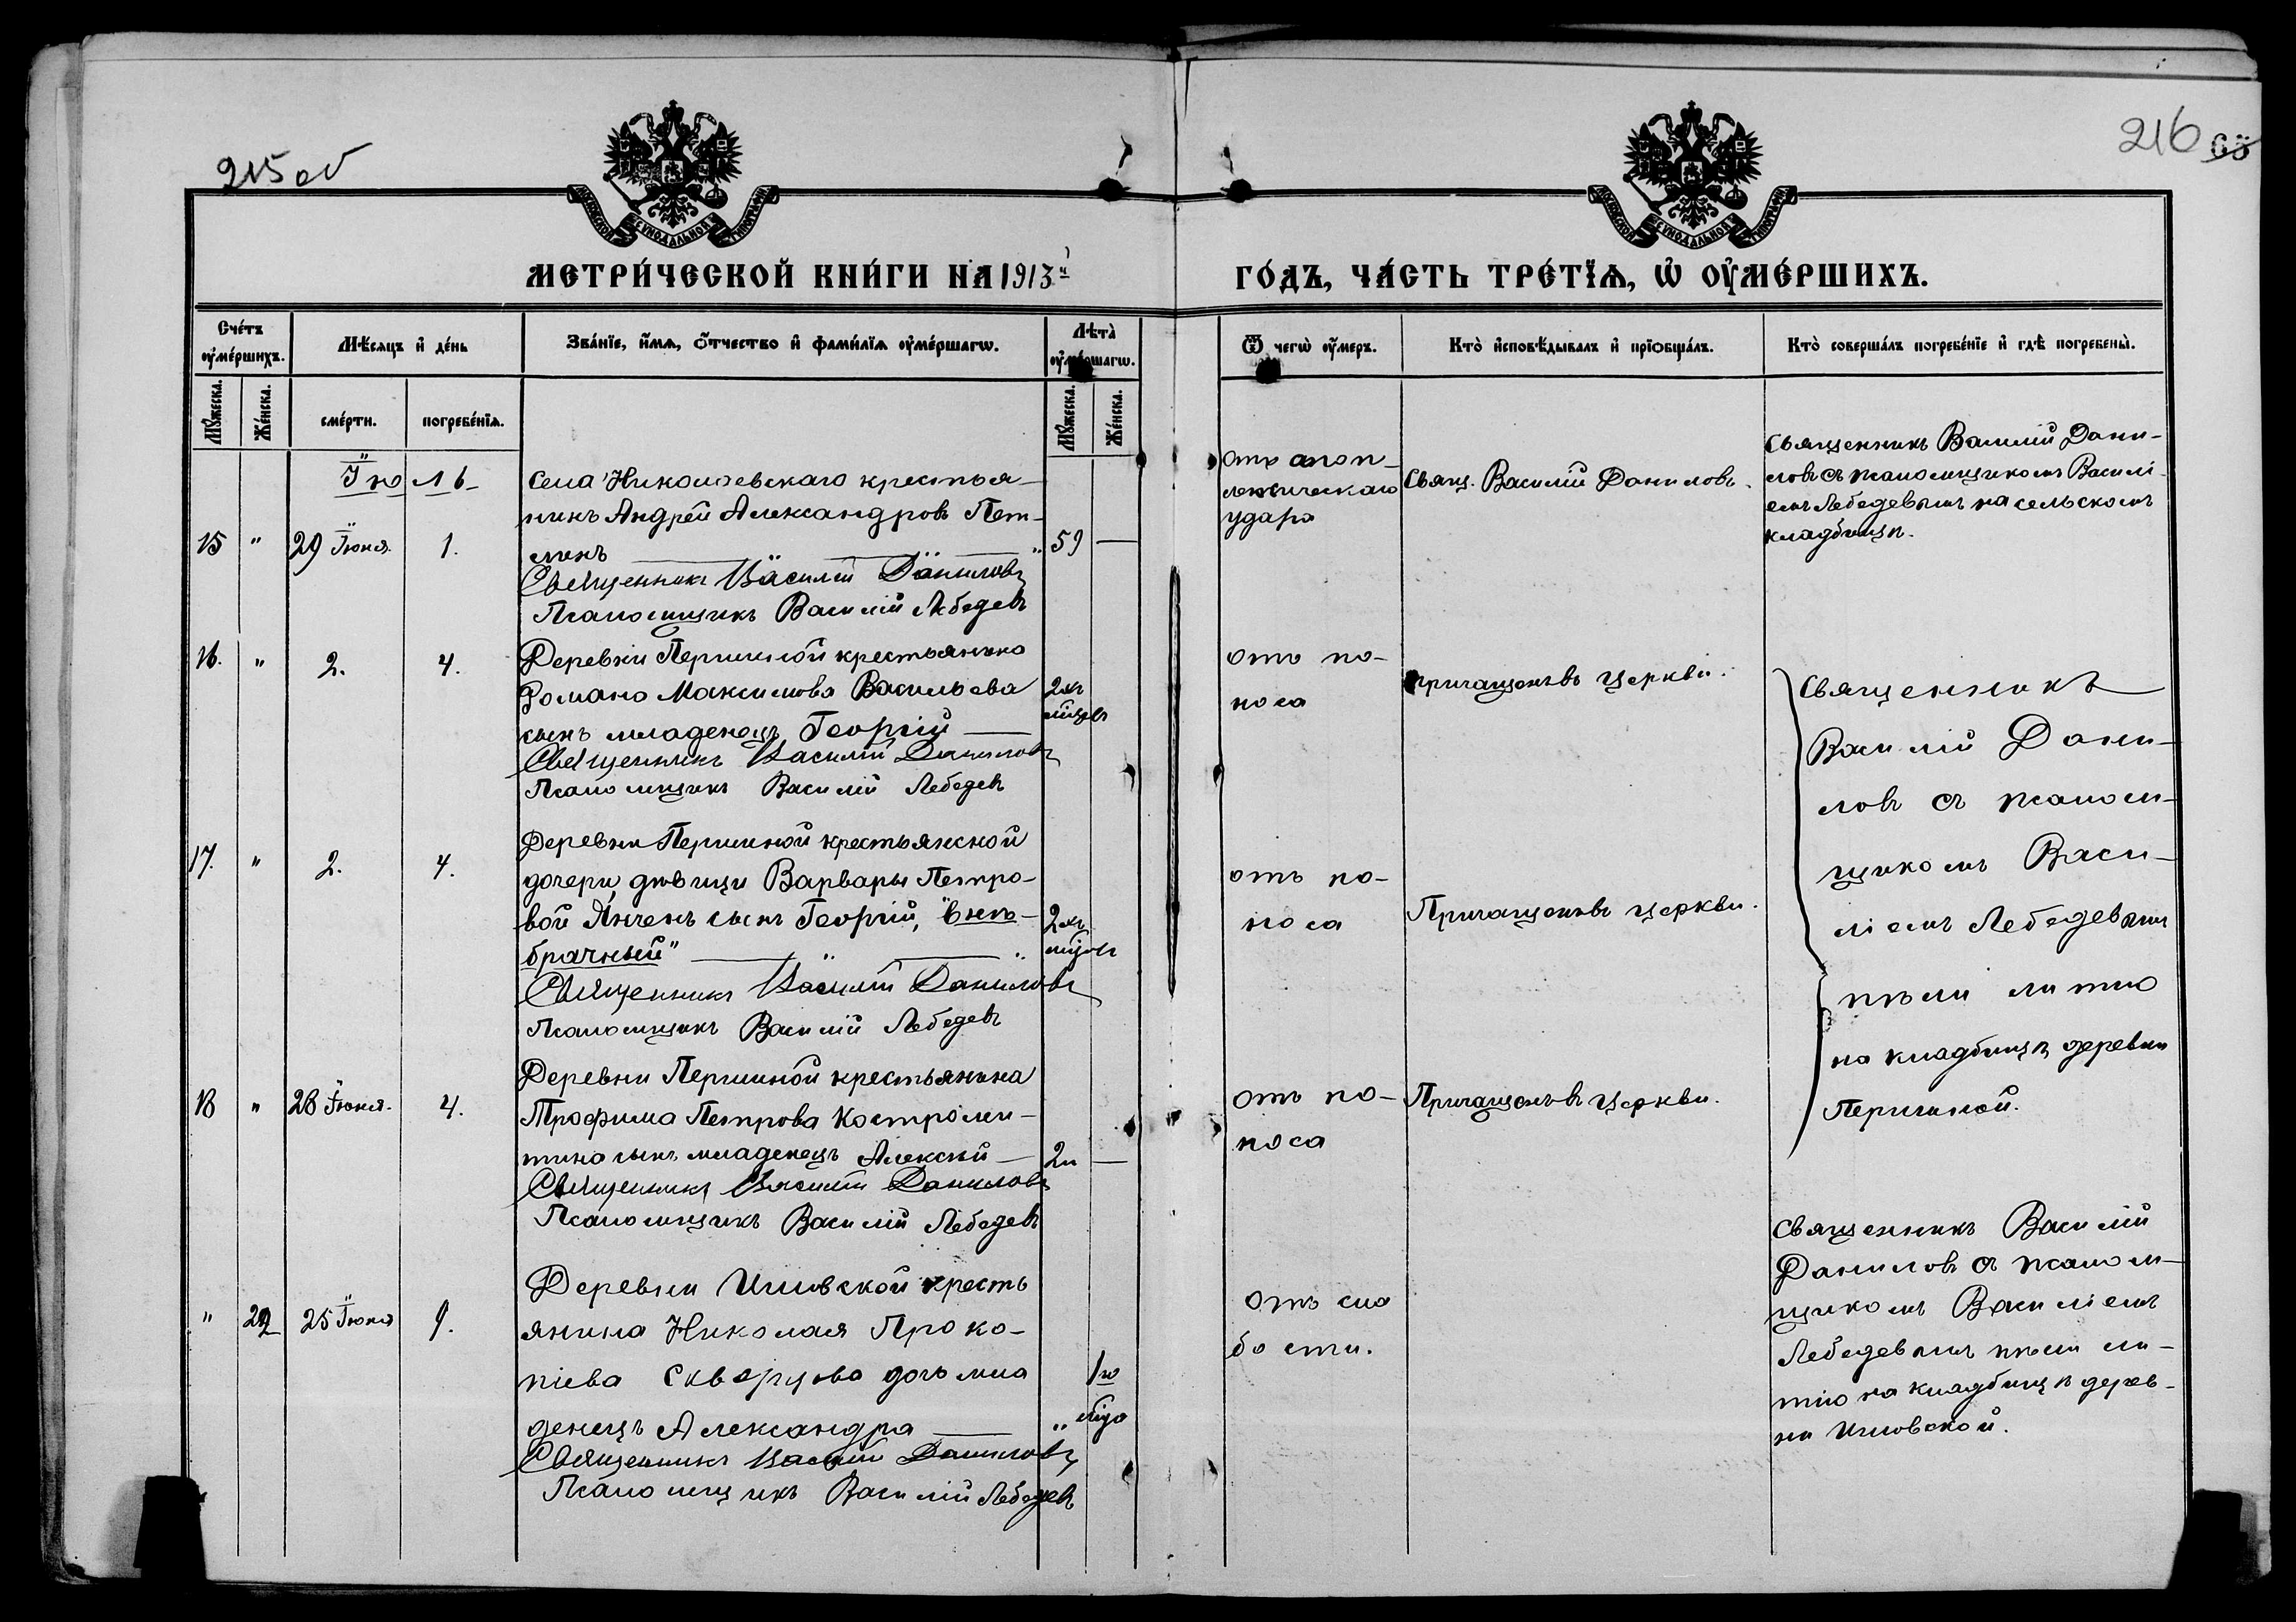 215 об
216
МЕТРИ́ЧЕСКОЙ КНИ́ГИ НА 1913 й
ГО́ДЪ, ЧА́СТЬ ТРЕ́ТЇѦ, Ѡ҆ ОУ҆МЕ́РШИХЪ.
Сче́тъ оу҆ме́ршихъ.
Мѣ́сяцъ и҆ де́нь
Зва́нїе, и҆́мѧ, ѻ҆́тчество и҆ фами́лїѧ оу҆ме́ршагѡ.
Лѣта̀ оу҆ме́ршагѡ.
Ѿ чегѡ̀ оу҆́меръ.
Кто̀ и҆сповѣ́дывалъ и҆ прїѻбща́лъ.
Кто̀ соверша́лъ погребе́нїе и҆ гдѣ̀ погребены̀.
Мꙋ́жеска.
Же́нска.
сме́рти.
погребе́нїѧ.
Мꙋ́жеска.
Же́нска.
Іюль
Села Николаевскаго крестья-
нинъ Андрей Александровъ Пет-
15 " 29 Іюня. 1. линъ 59 —
Священникъ Василій Даниловъ
Псаломщикъ Василій Лебедевъ
отъ апоп-
лексическаго
удара
Свящ. Василій Даниловъ.
Священникъ Василій Дани-
ловъ съ псаломщикомъ Василі-
емъ Лебедевымъ на сельскомъ
кладбищѣ.
16. " 2. 4. Деревни Першиной крестьянина
Романа Максимова Васильева
сынъ младенецъ Георгій —
2хъ
мѣсцевъ
Священникъ Василій Даниловъ
Псаломщикъ Василій Лебедевъ
отъ по-
носа
Причащенъ въ церкви.
Священникъ
Василій Дани-
ловъ съ псалом-
щикомъ Васи-
ліемъ Лебедевымъ
пѣли литію
на кладбищѣ деревни
Першиной.
17. " 2. 4. Деревни Першиной крестьянской
дочери, дѣвицы Варвары Петро-
вой сынъ Георгій, "внѣ-
брачный"
2хъ
Священникъ Василій Даниловъ
Псаломщикъ Василій Лебедевъ
отъ по-
носа
Причащенъ въ церкви.
18 " 28 Іюня. 4. Деревни Першиной крестьянина
Трофима Петрова Костроми-
тина сынъ младенецъ Алексѣй — 2н —
Священникъ Василій Даниловъ
Псаломщикъ Василій Лебедевъ
отъ по-
носа
Причащенъ въ церкви.
" 22 25 Іюня 9. Деревни Ишовской кресть
янина Николая Проко-
піева Скворцова дочь мла
денецъ Александра —
1го
Священникъ Василій Даниловъ
Псаломщикъ Василій Лебедевъ
отъ сла
бости.
Священникъ Василій
Даниловъ съ псалом-
щикомъ Василіемъ
Лебедевымъ пѣли ли-
тію на кладбищѣ дерев-
ни Ишовской.